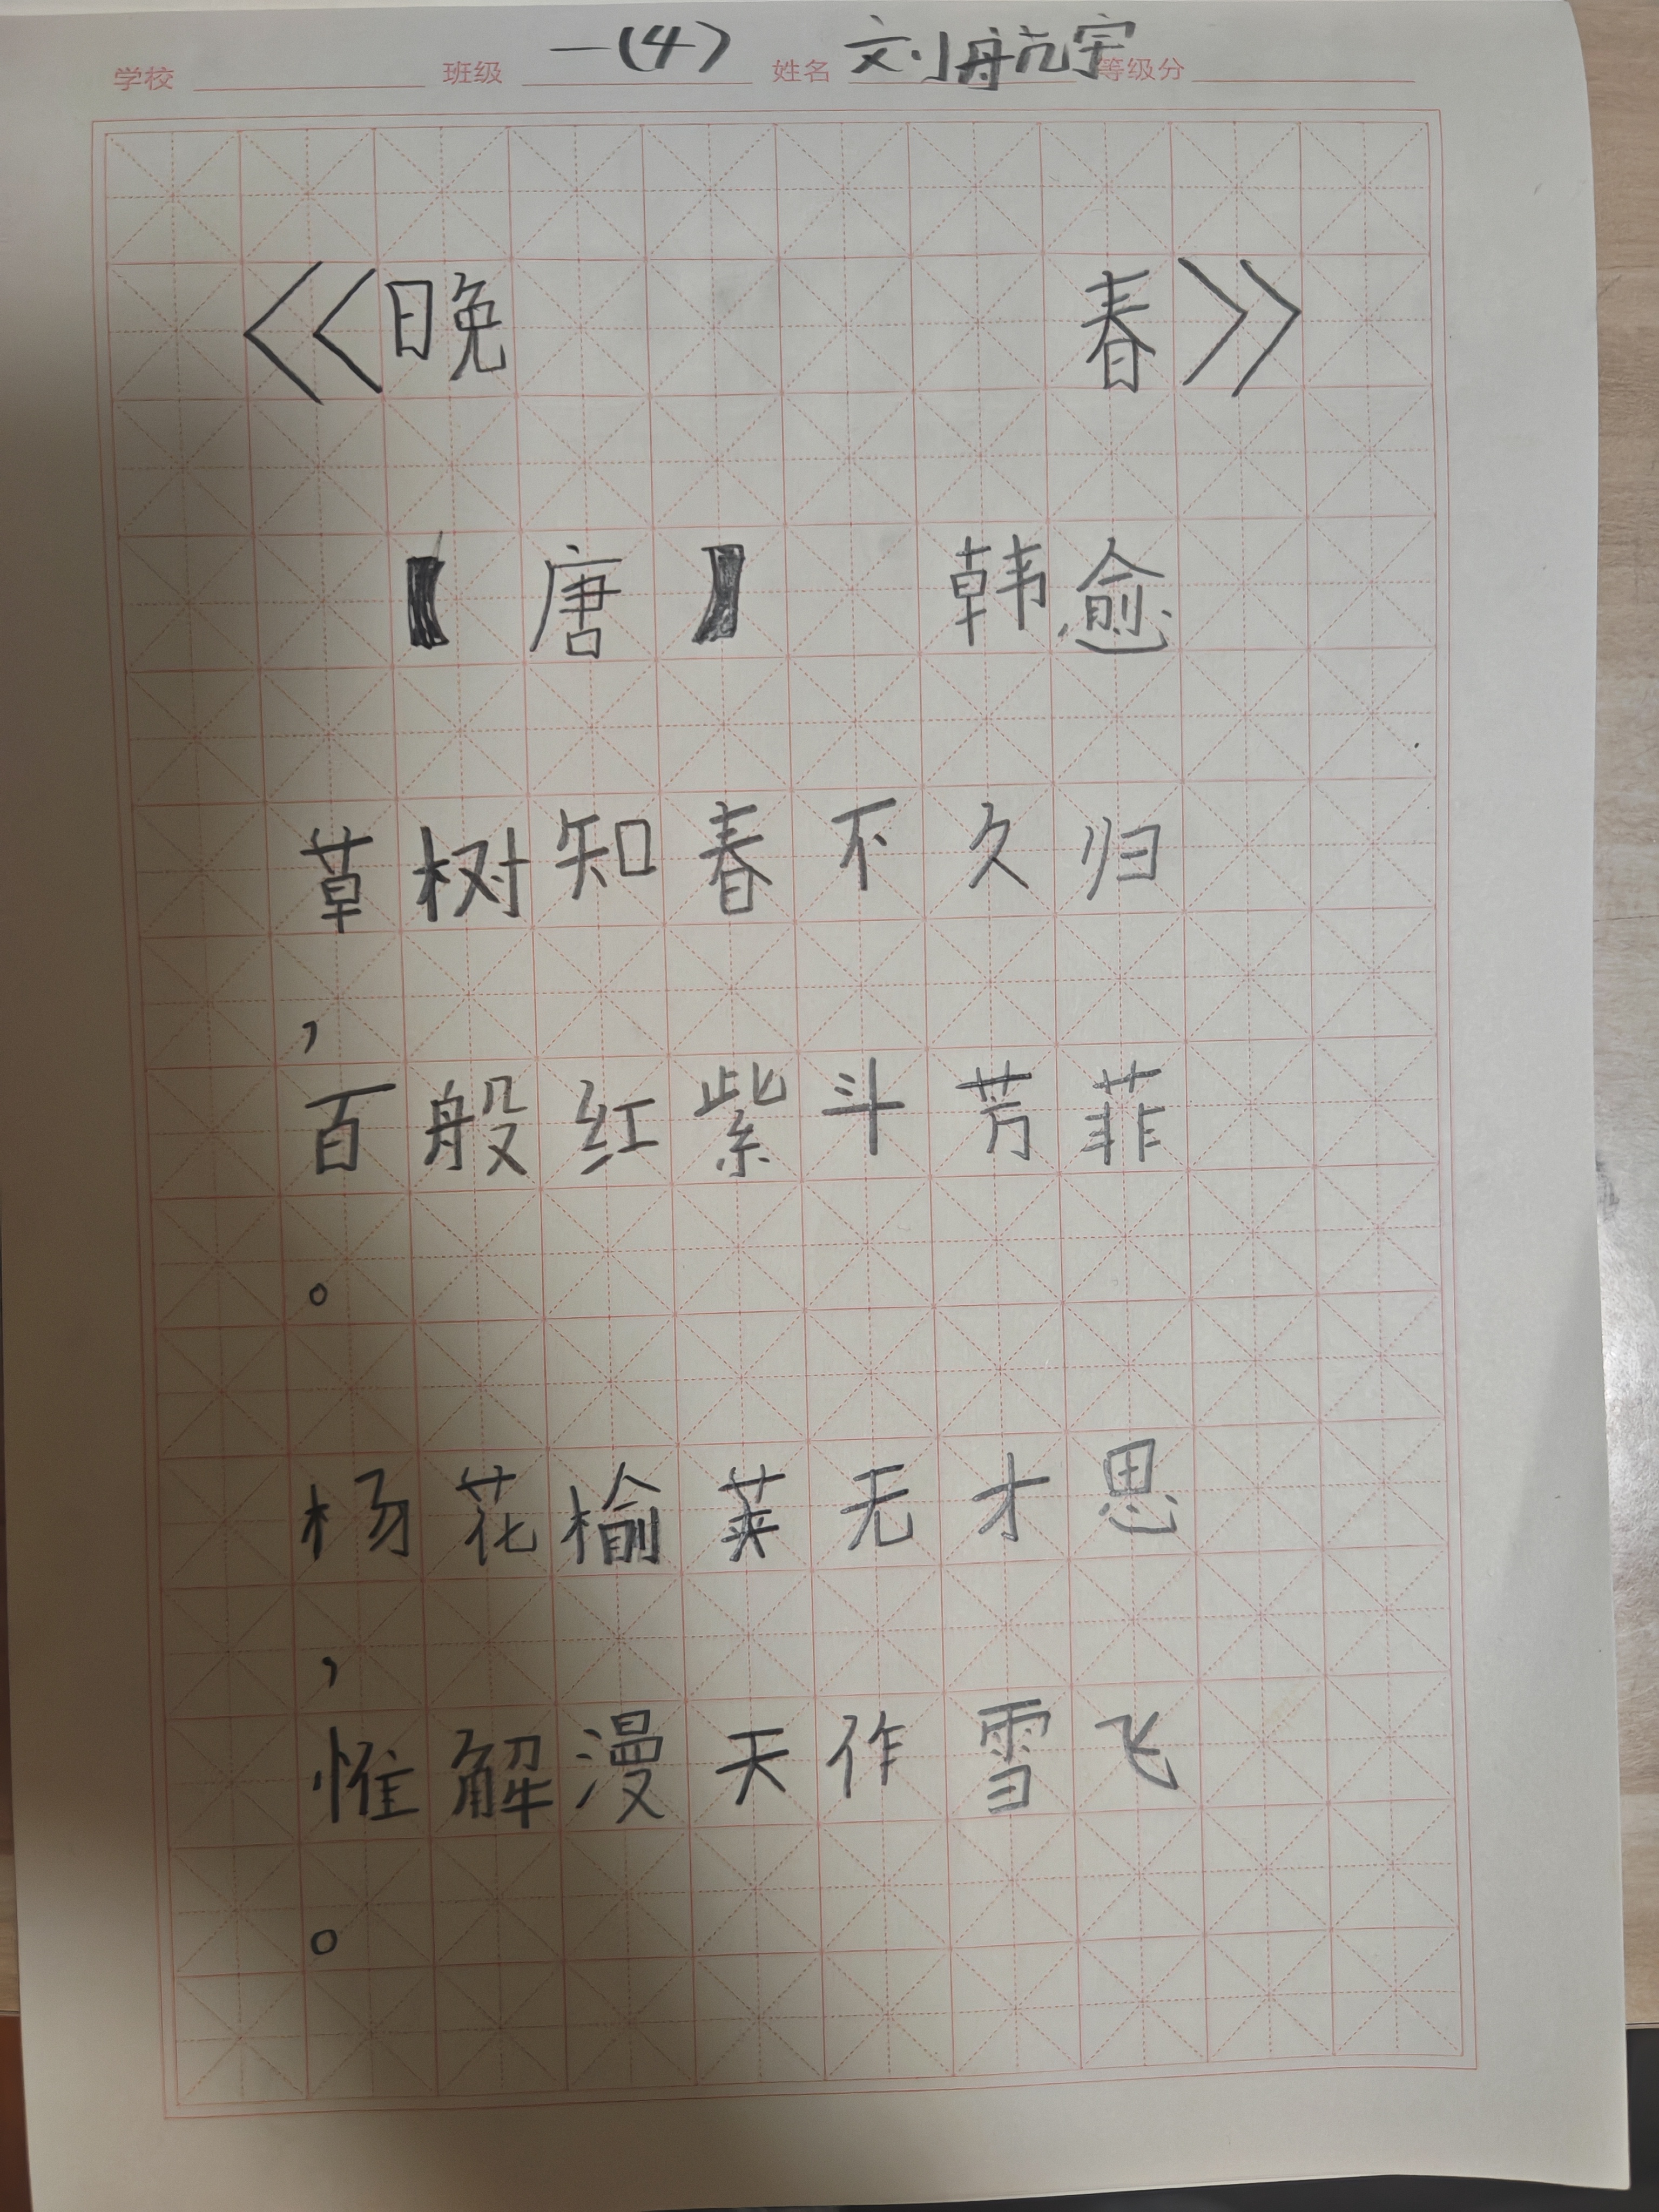 学校 班级 一(4) 姓名 刘航宇 等级分
<<晚 春>>
【唐】 韩愈
草树知春不久归
,
百般红紫斗芳菲
。
杨花榆荚无才思
,
惟解漫天作雪飞
。